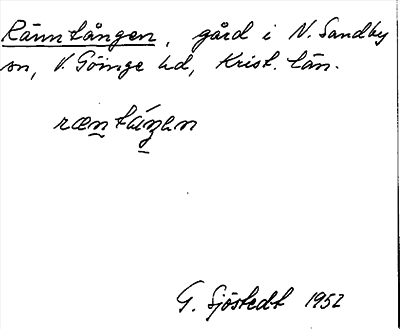 Rämntången, gård i N. Sandby
sn, V. Göinge hd, Krist. län.
ræntáŋen
G. Sjöstedt 1952